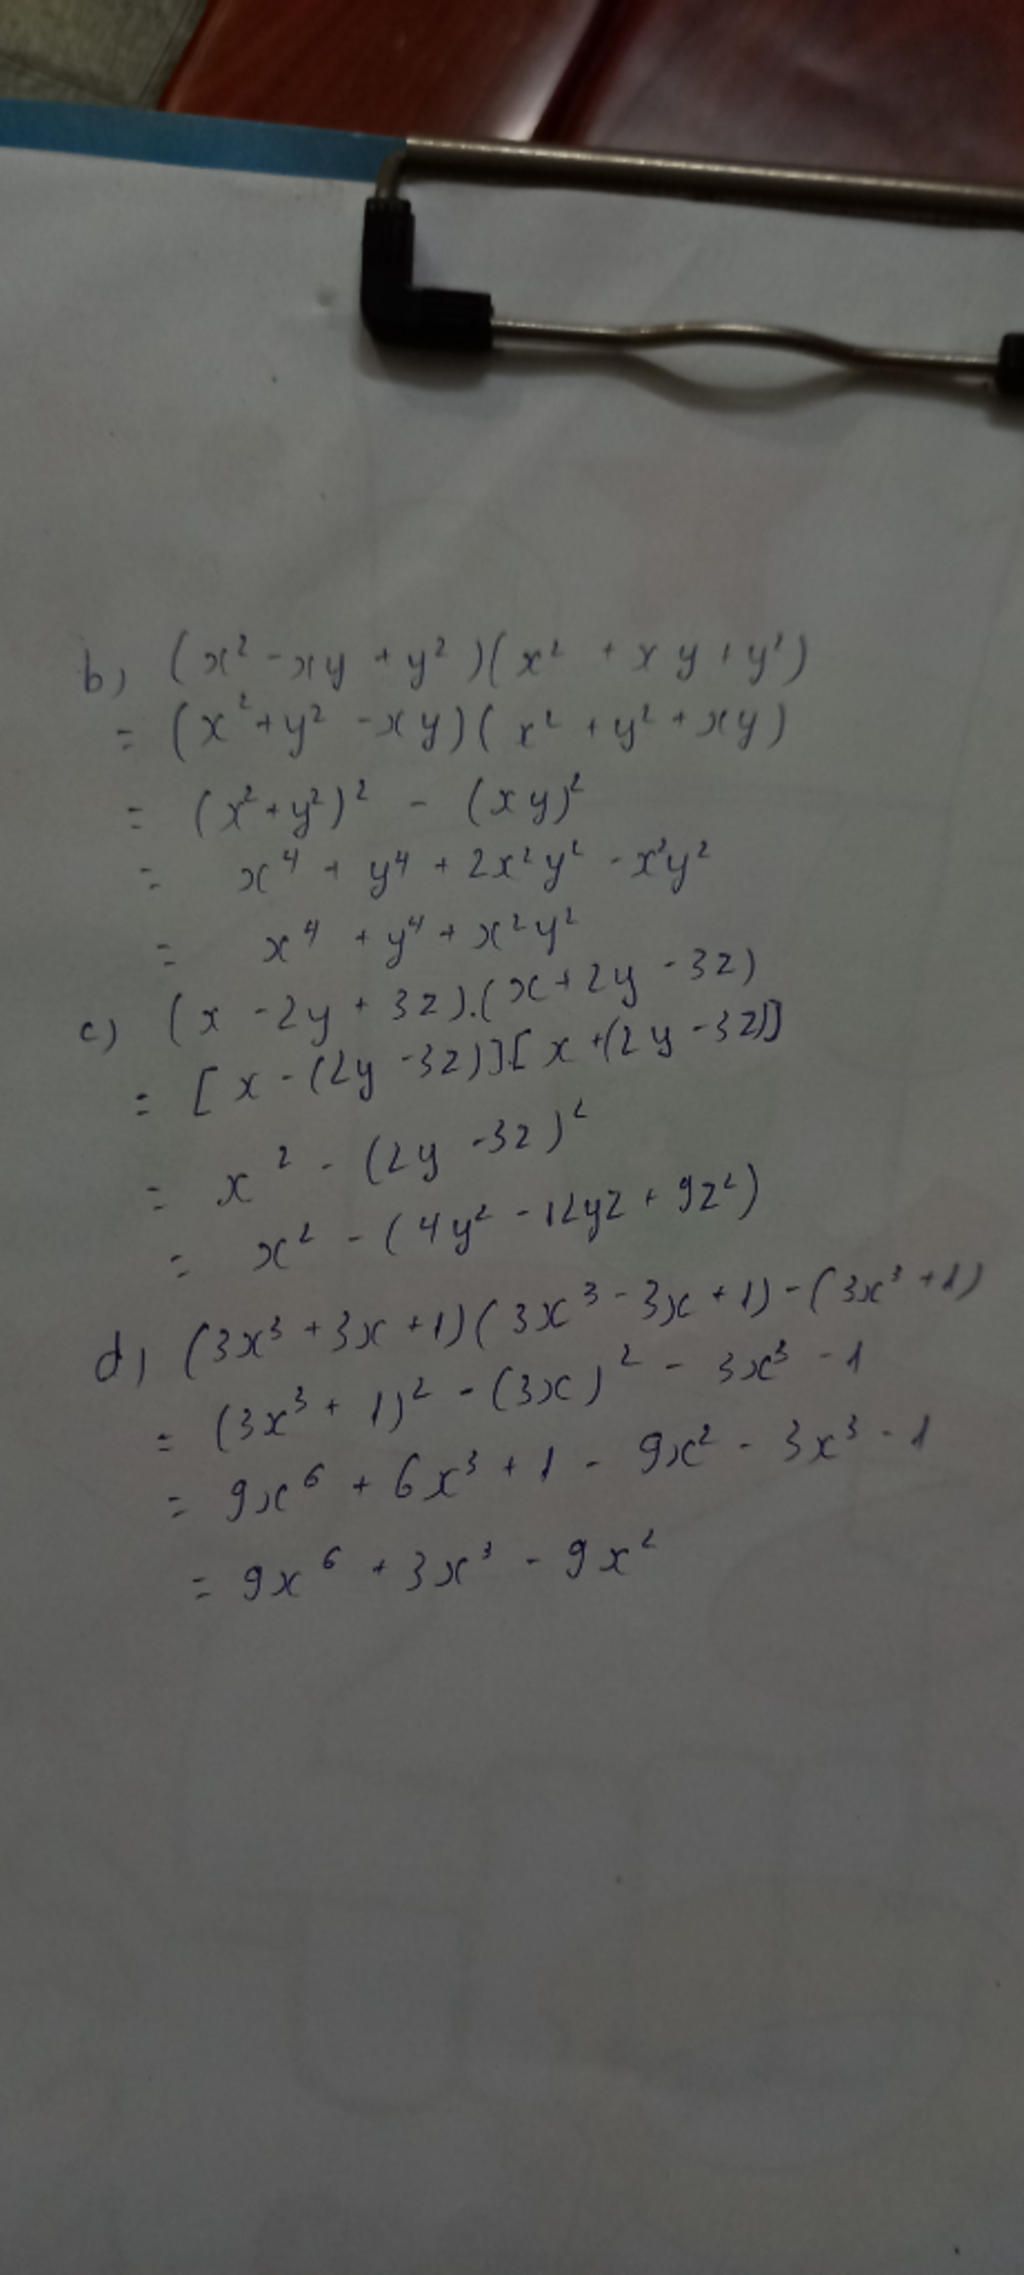 b) (x² - xy + y²)(x² + xy + y²)
= (x² + y² - xy)(x² + y² + xy)
= (x² + y²)² - (xy)²
= x⁴ + y⁴ + 2x²y² - x²y²
= x⁴ + y⁴ + x²y²
c) (x - 2y + 3z).(x + 2y - 3z)
= [x - (2y - 3z)].[x + (2y - 3z)]
= x² - (2y - 3z)²
= x² - (4y² - 12yz + 9z²)
d) (3x³ + 3x + 1)(3x³ - 3x + 1) - (3x³ + 1)
= (3x³ + 1)² - (3x)² - 3x³ - 1
= 9x⁶ + 6x³ + 1 - 9x² - 3x³ - 1
= 9x⁶ + 3x³ - 9x²